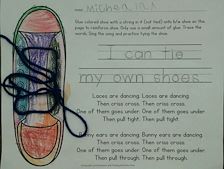 Name: Michella
Glue colored shoe with a string in it (not tied) onto b/w shoe on this
page to reinforce shoe. Only use a small amount of glue. Trace the
words. Sing the song and practice tying the shoe.
I can tie
my own shoes.
Laces are dancing. Laces are dancing.
Then criss cross. Then criss cross.
One of them goes under. One of them goes under.
Then pull tight. Then pull tight.
ny ears are dancing. Bunny ears are dancing.
Then criss cross. Then criss cross.
One of them goes under. One of them goes under.
Then pull through. Then pull through.